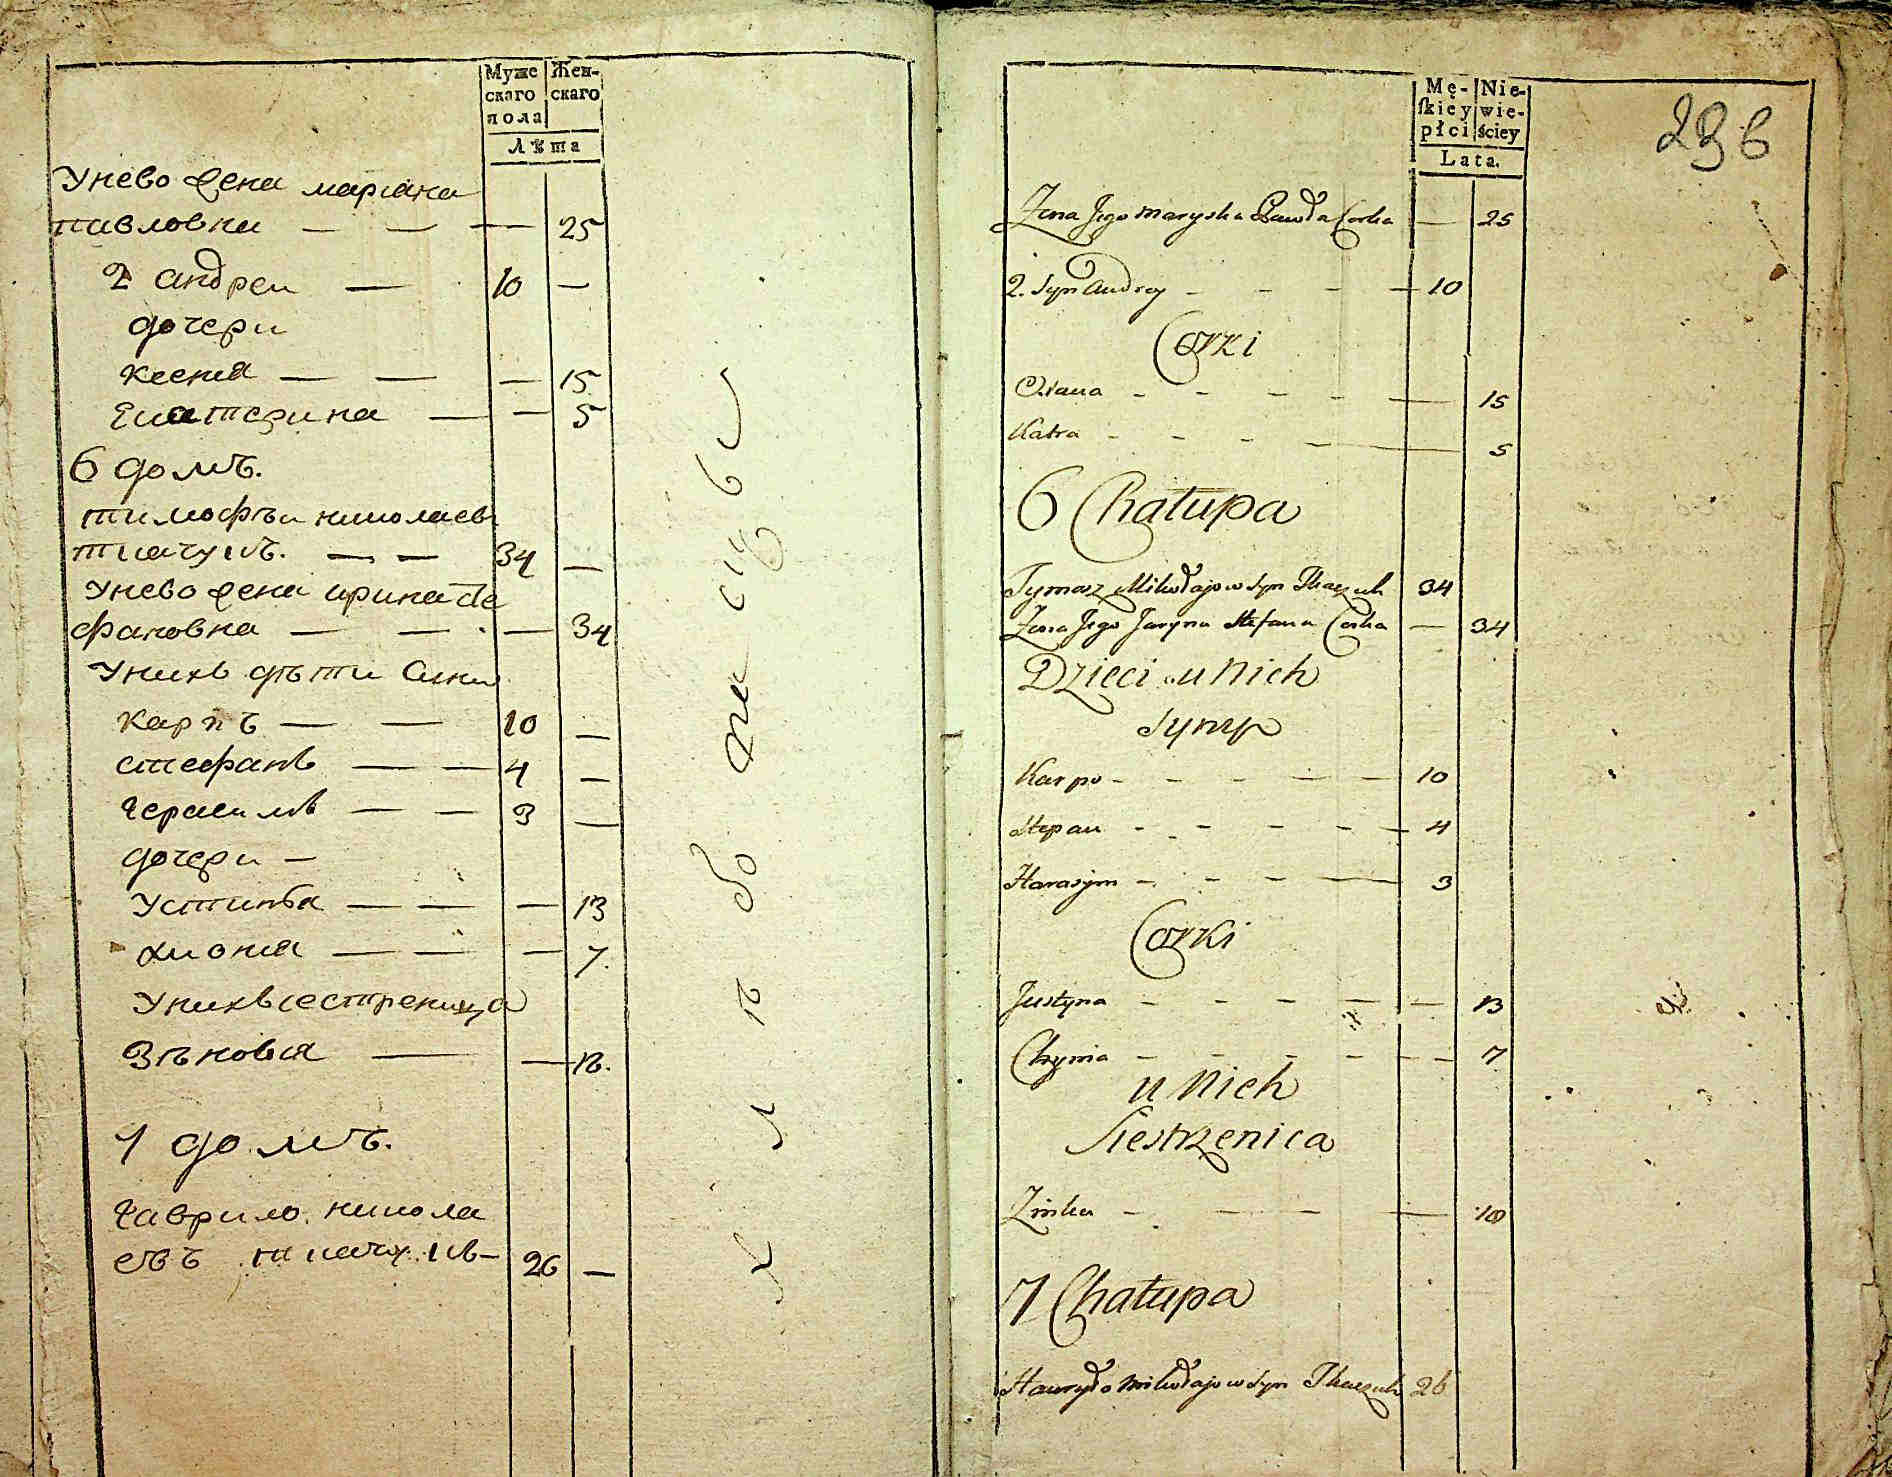 Муже
скаго
пола
Жен-
скаго
Лѣта
Унево жена мариана
павловна — — — 25
2 андреи — 10 —
дочери
ксения — — — 15
Екатерина — — 5
6 домъ.
тимофѣи николаевъ
ткачукъ. — — 34 —
Унево жена ирина Сте
фановна — — — 34
Унихъ дѣти Сини
карпъ — — 10 —
стефанъ — — 4 —
герасимъ — — 3 —
дочери —
Устинѣа — — — 13
хиония — — — 7.
Унихъ сестреница
Зѣновия — —
7 домъ.
гаврило никола
евъ ткачукъ — 26 —
Mę-
skiey
płci
Nie-
wie-
ściey
Lata.
236
Zona Jego Maryska Pawła Corka — 25
2. Syn Andrey - - - - 10
Corki
- - - - — 15
Katra - - - - — 5
6 Chałupa
Tymosz Mikołajow Syn Tkaczuk 34
Zona Jego Jaryna Stefana Corka — 34
Dzieci u Nich
Syny
Karpo - - - - — 10
Stepan - - - - — 4
Harasym - - - - — 3
Corki
Justyna - - - - — 13
Chynia - - - - — 7
u Nich
Siestrzenica
Zinka - - - - —
7 Chałupa
Hawryło Mikołajow Syn Tkaczuk 26